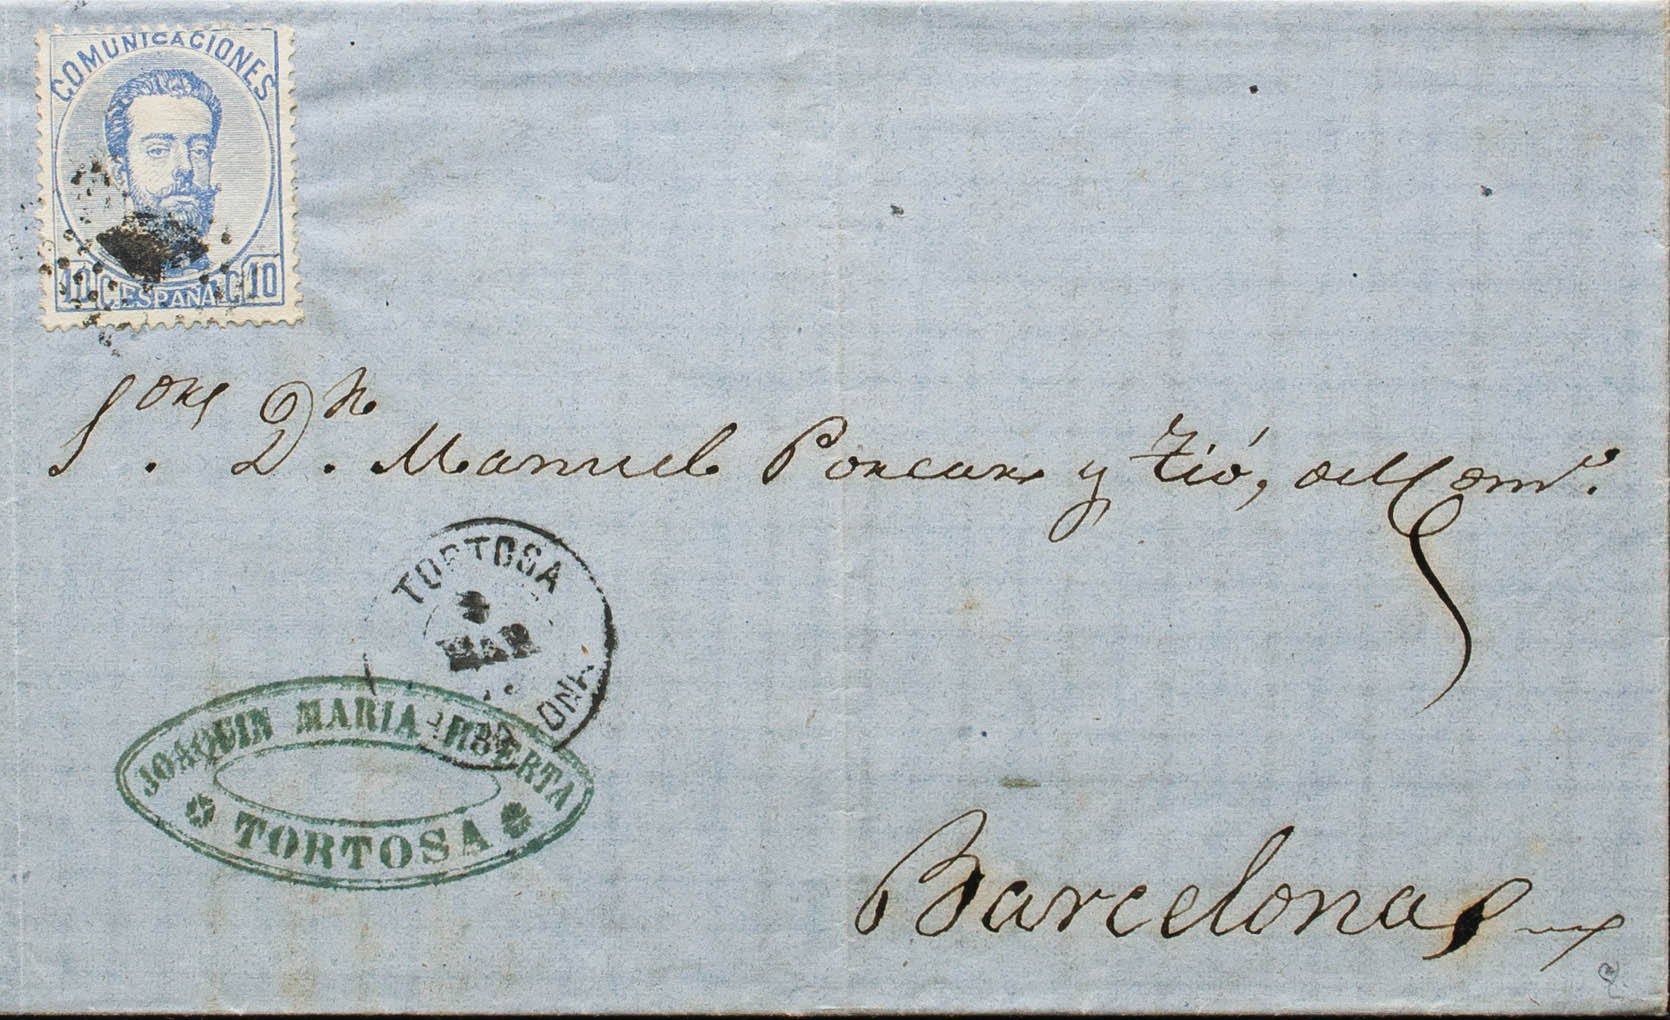 COMUNICACIONES
10 C. ESPAÑA C. 10
Sores Dn. Manuel Porcar y Tió, del Como.
TORTOSA
MAR
JOAQUIN MARIA HUERTA
TORTOSA
Barcelona